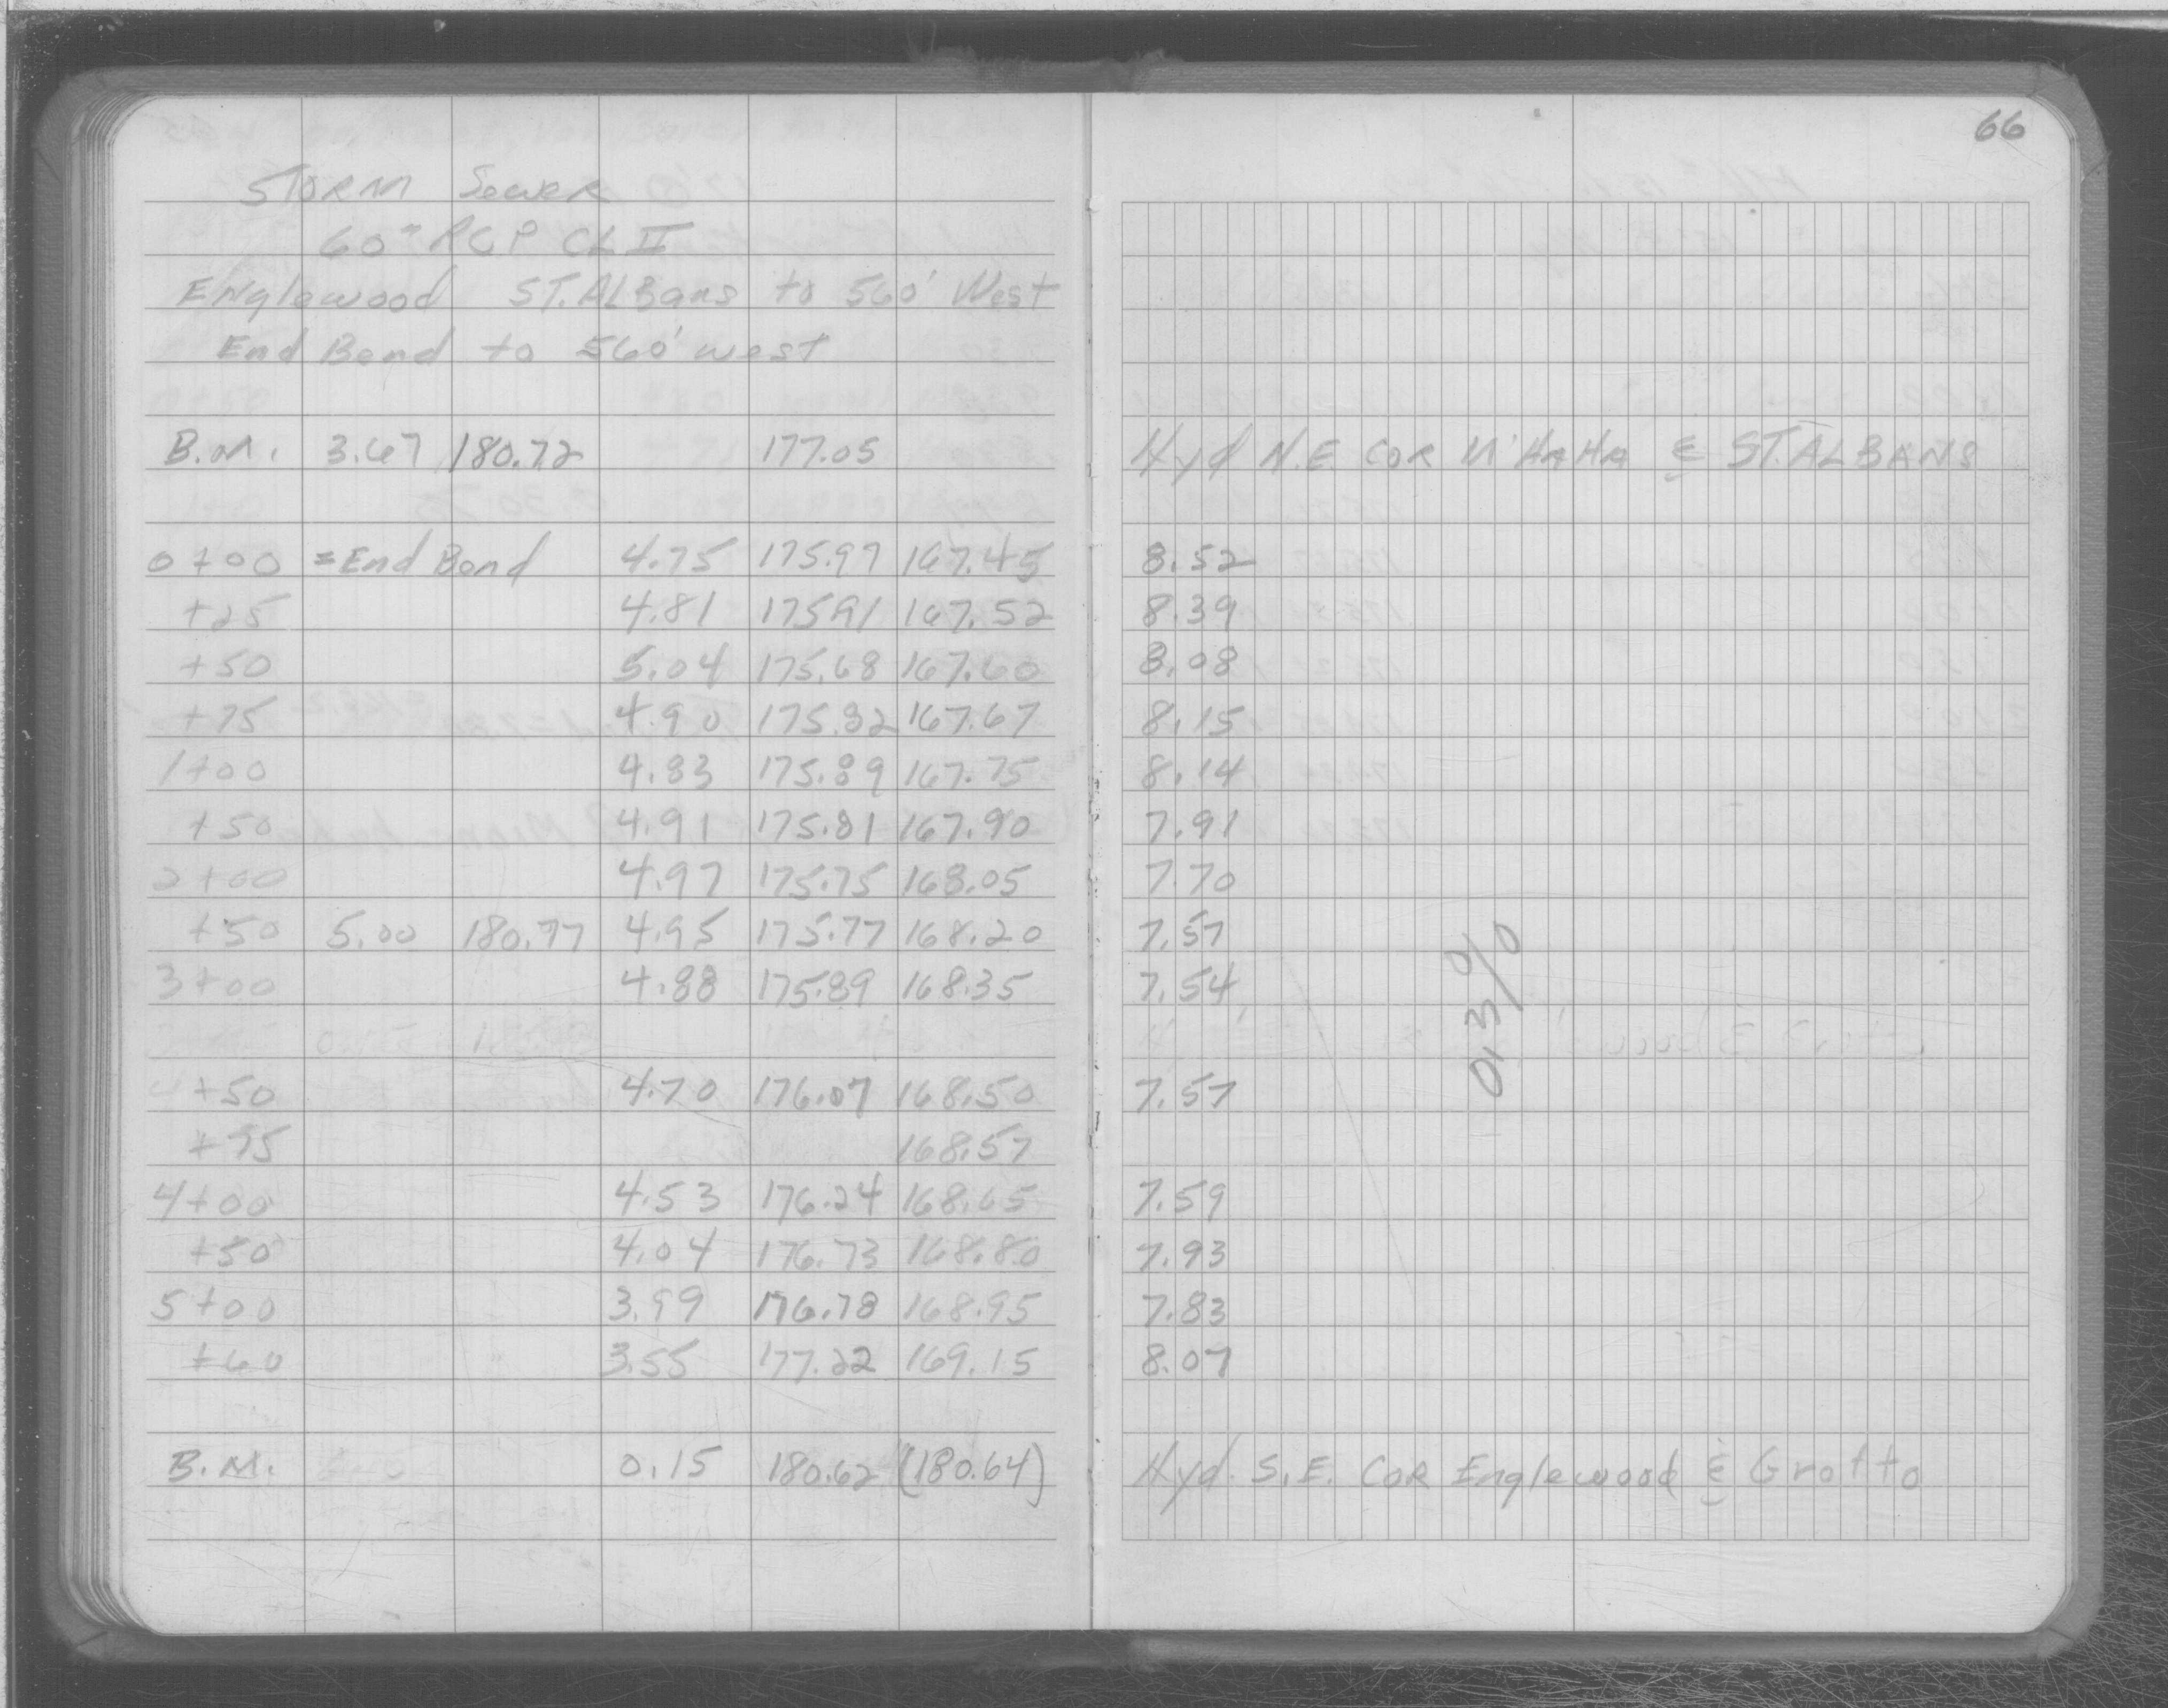 66
STORM Sewer
60" RCP CL II
Englewood ST. ALBans to 560' West
End Bend to 560' west
B.M. 3.67 180.72 177.05 Hyd N.E. COR M'HAHA & ST. ALBANS
0+00 =End Bend 4.75 175.97 167.45 8.52
+25 4.81 175.91 167.52 8.39
+50 5.04 175.68 167.60 8.08
+75 4.90 175.82 167.67 8.15
1+00 4.83 175.89 167.75 8.14
+50 4.91 175.81 167.90 7.91
2+00 4.97 175.75 168.05 7.70
+50 5.00 180.77 4.95 175.77 168.20 7.57
3+00 4.88 175.89 168.35 7.54
0.3%
+50 4.70 176.07 168.50 7.57
+75 168.57
4+00 4.53 176.24 168.65 7.59
+50 4.04 176.73 168.80 7.93
5+00 3.99 176.78 168.95 7.83
+60 3.55 177.22 169.15 8.07
B.M. 0.15 180.62 (180.64) Hyd. S.E. COR Englewood & Grotto